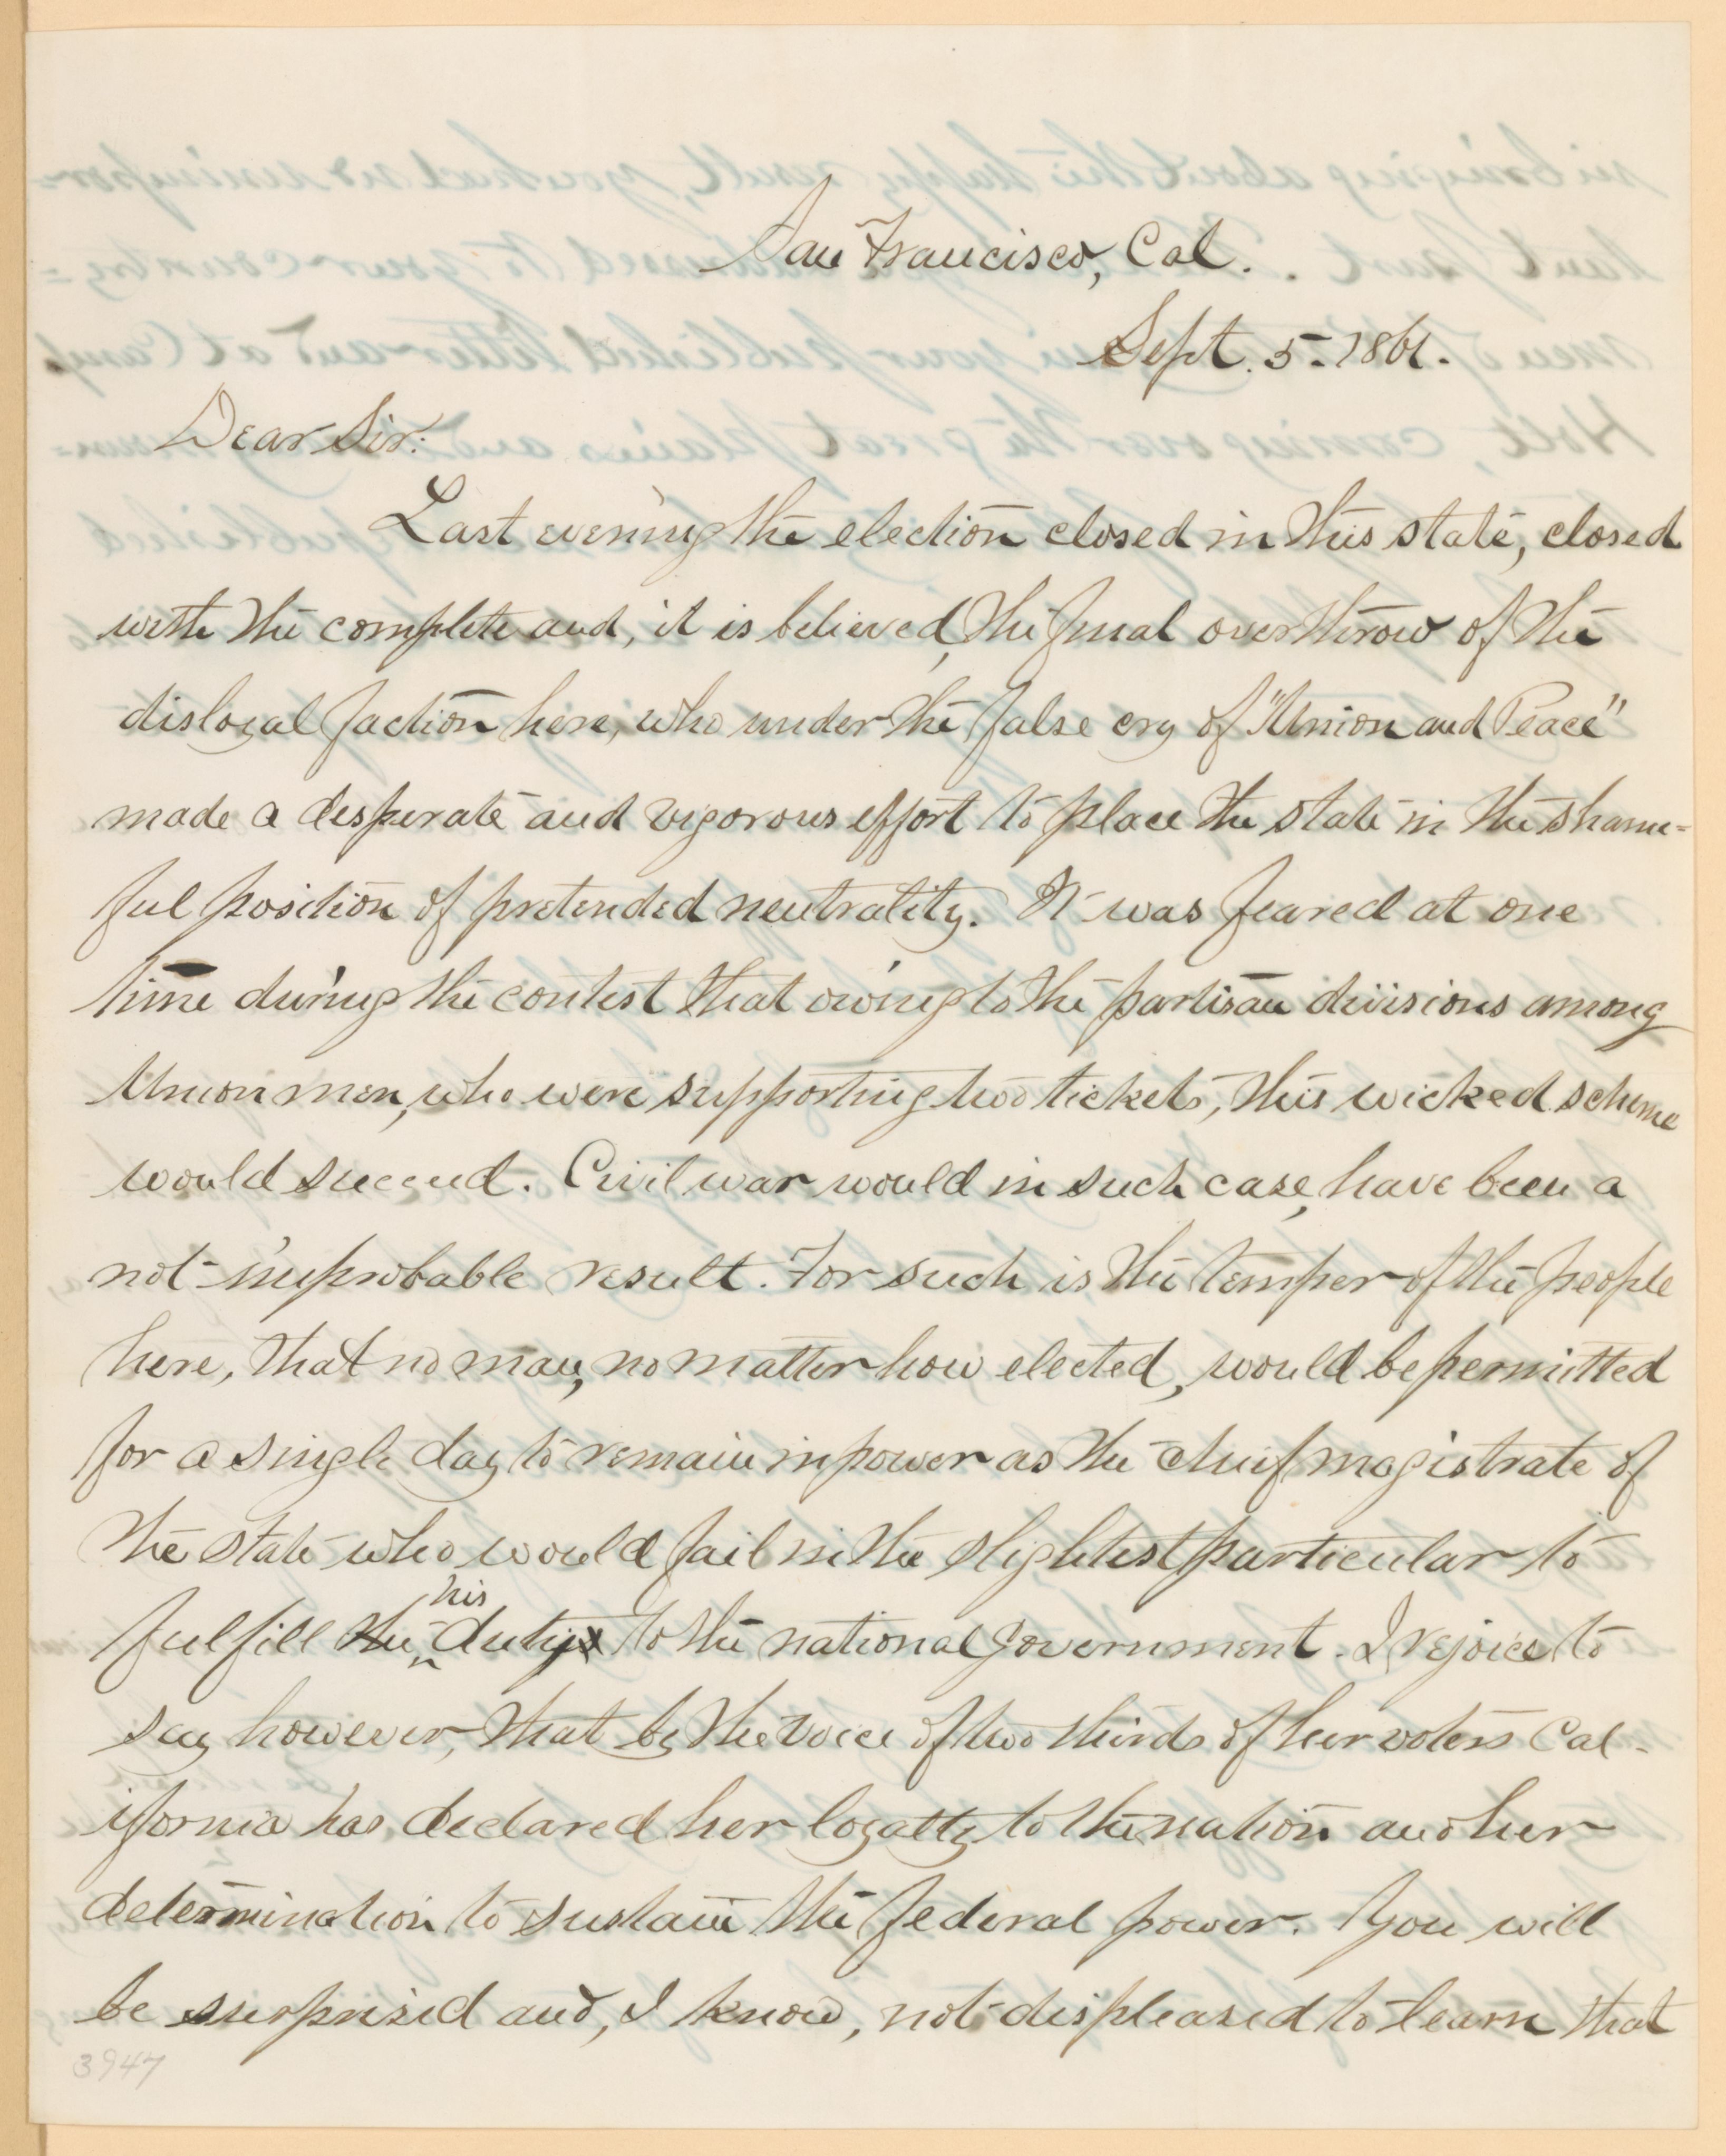 San Francisco, Cal.
Sept. 5. 1861.
Dear Sir:
Last evening the election closed in this state, closed
with the complete and, it is believed, the final overthrow of the
disloyal faction here, who under the false cry of "Union and Peace"
made a desperate and vigorous effort to place the state in the shame=
ful position of pretended neutrality. It was feared at one
time during the contest that owing to the partisan divisions among
Union men, who were supporting two tickets, this wicked scheme
would succeed. Civil war would in such case, have been a
not improbable result. For such is the temper of the people
here, that no man, no matter how elected, would be permitted
for a single day to remain in power as the chief magistrate of
the state who would fail in the slightest particular to
his
fulfill the duty to the national government. I rejoice to
say however, that by the voice of two thirds of her voters Cal-
ifornia has declared her loyalty to the nation and her
determination to sustain the federal power. You will
be surprised and, I know, not displeased to learn that
3947